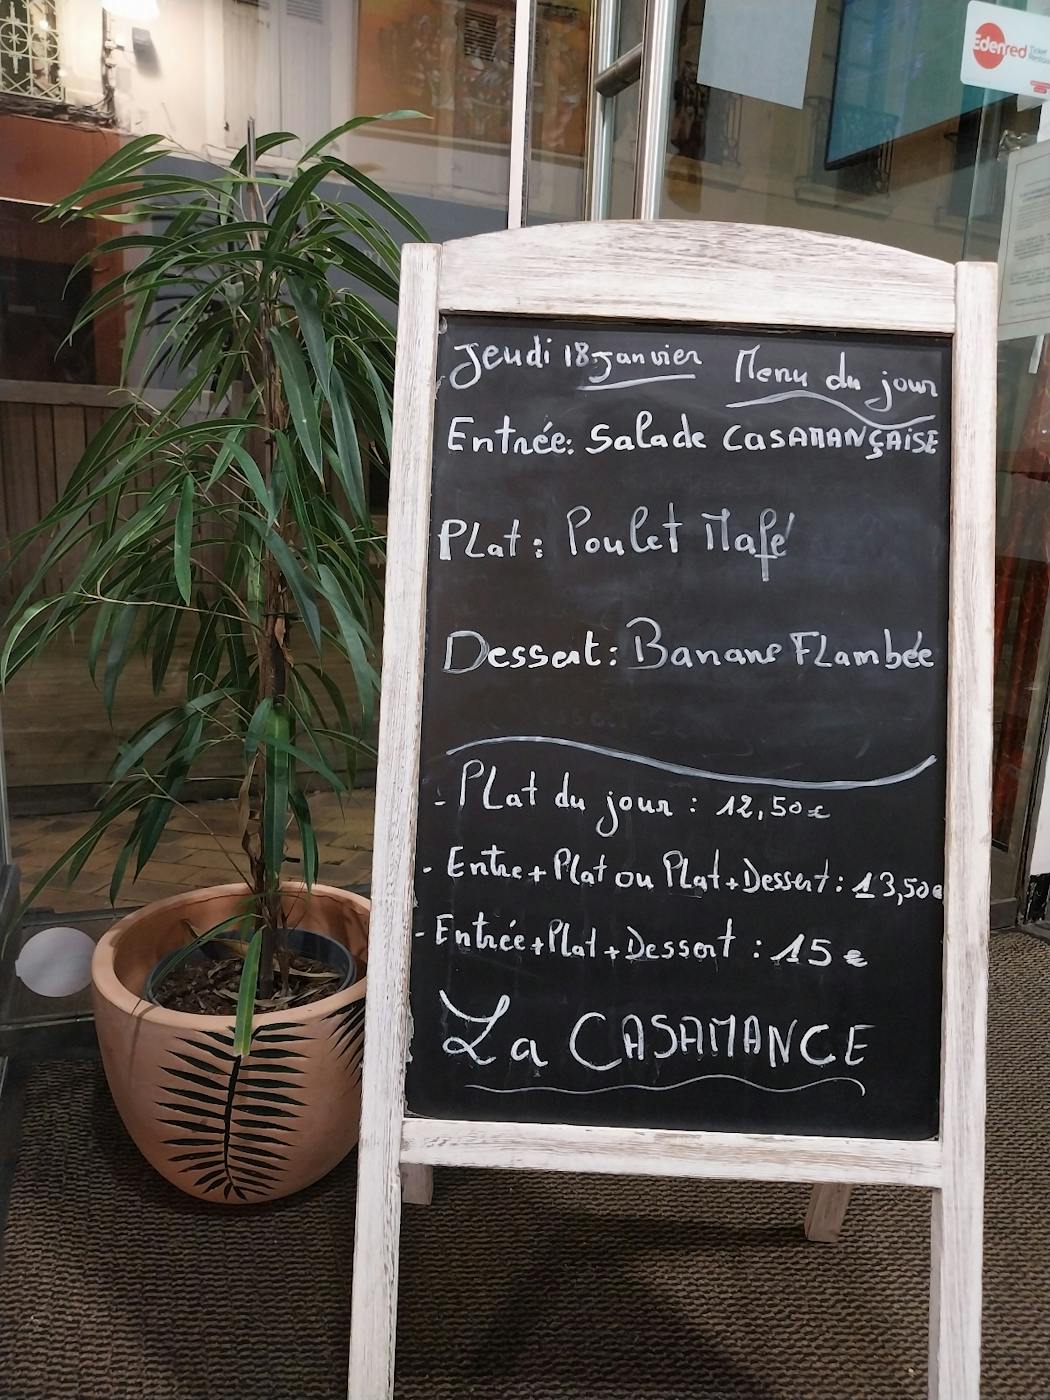 Edenred
Ticket
Jeudi 18 janvier Menu du jour
Entrée: Salade CASAMANÇAISE
Plat: Poulet Mafé
Dessert: Banane Flambée
- Plat du jour : 12,50€
- Entre + Plat ou Plat + Dessert : 13,50€
- Entrée + Plat + Dessert : 15 €
La CASAMANCE